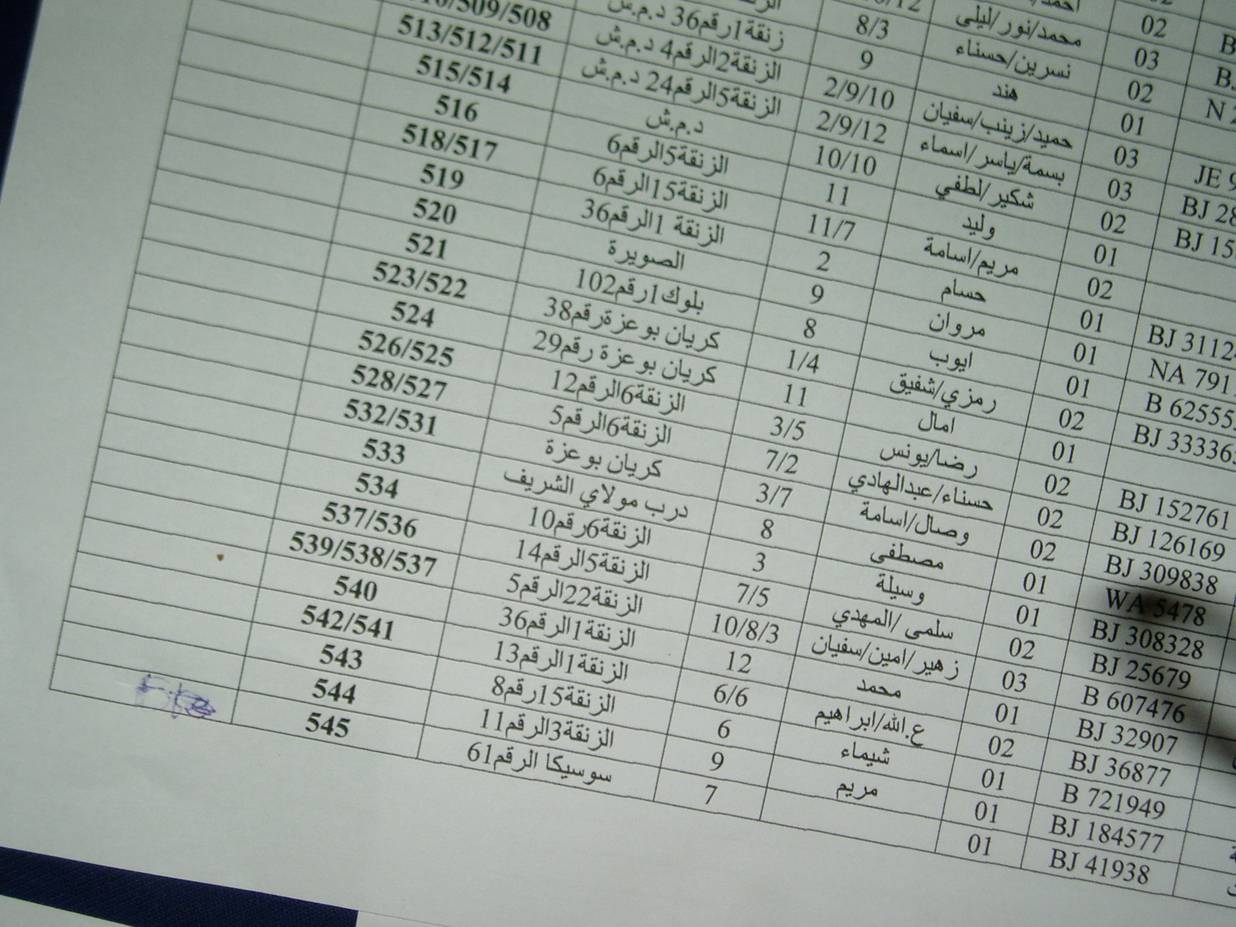 02
03 محمد/نور/ليلى
N 2 02 نسرين/حسناء 8/3
01 هند 9 زنقة1رقم36 د.م.ش
JE 9 03 حميد/زينب/سفيان 2/9/10 الزنقة2الرقم4 د.م.ش /509/508
BJ 28 03 بسمة/ياسر/اسماء 2/9/12 الزنقة5الرقم24 د.م.ش 513/512/511
BJ 15 02 شكير/لطفي 10/10 د.م.ش 515/514
01 وليد 11 الزنقة5الرقم6 516
02 مريم/اسامة 11/7 الزنقة15الرقم6 518/517
BJ 3112 01 حسام 2 الزنقة 1الرقم36 519
NA 791 01 مروان 9 الصويرة 520
B 62555 01 ايوب 8 بلوك1رقم102 521
BJ 33336 02 رمزي/شفيق 1/4 كريان بوعزةرقم38 523/522
01 امال 11 كريان بوعزة رقم29 524
BJ 152761 02 رضا/يونس 3/5 الزنقة6الرقم12 526/525
BJ 126169 02 حسناء/عبدالهادي 7/2 الزنقة6الرقم5 528/527
BJ 309838 02 وصال/اسامة 3/7 كريان بوعزة 532/531
WA 5478 01 مصطفى 8 درب مولاي الشريف 533
BJ 308328 01 وسيلة 3 الزنقة6رقم10 534
BJ 25679 02 سلمى /المهدي 7/5 الزنقة5الرقم14 537/536
B 607476 03 زهير/امين/سفيان 10/8/3 الزنقة22الرقم5 539/538/537
BJ 32907 01 محمد 12 الزنقة1الرقم36 540
BJ 36877 02 ع.الله/ابراهيم 6/6 الزنقة1الرقم13 542/541
B 721949 01 شيماء 6 الزنقة15رقم8 543
BJ 184577 01 مريم 9 الزنقة3الرقم11 544
BJ 41938 01 7 سوسيكا الرقم61 545